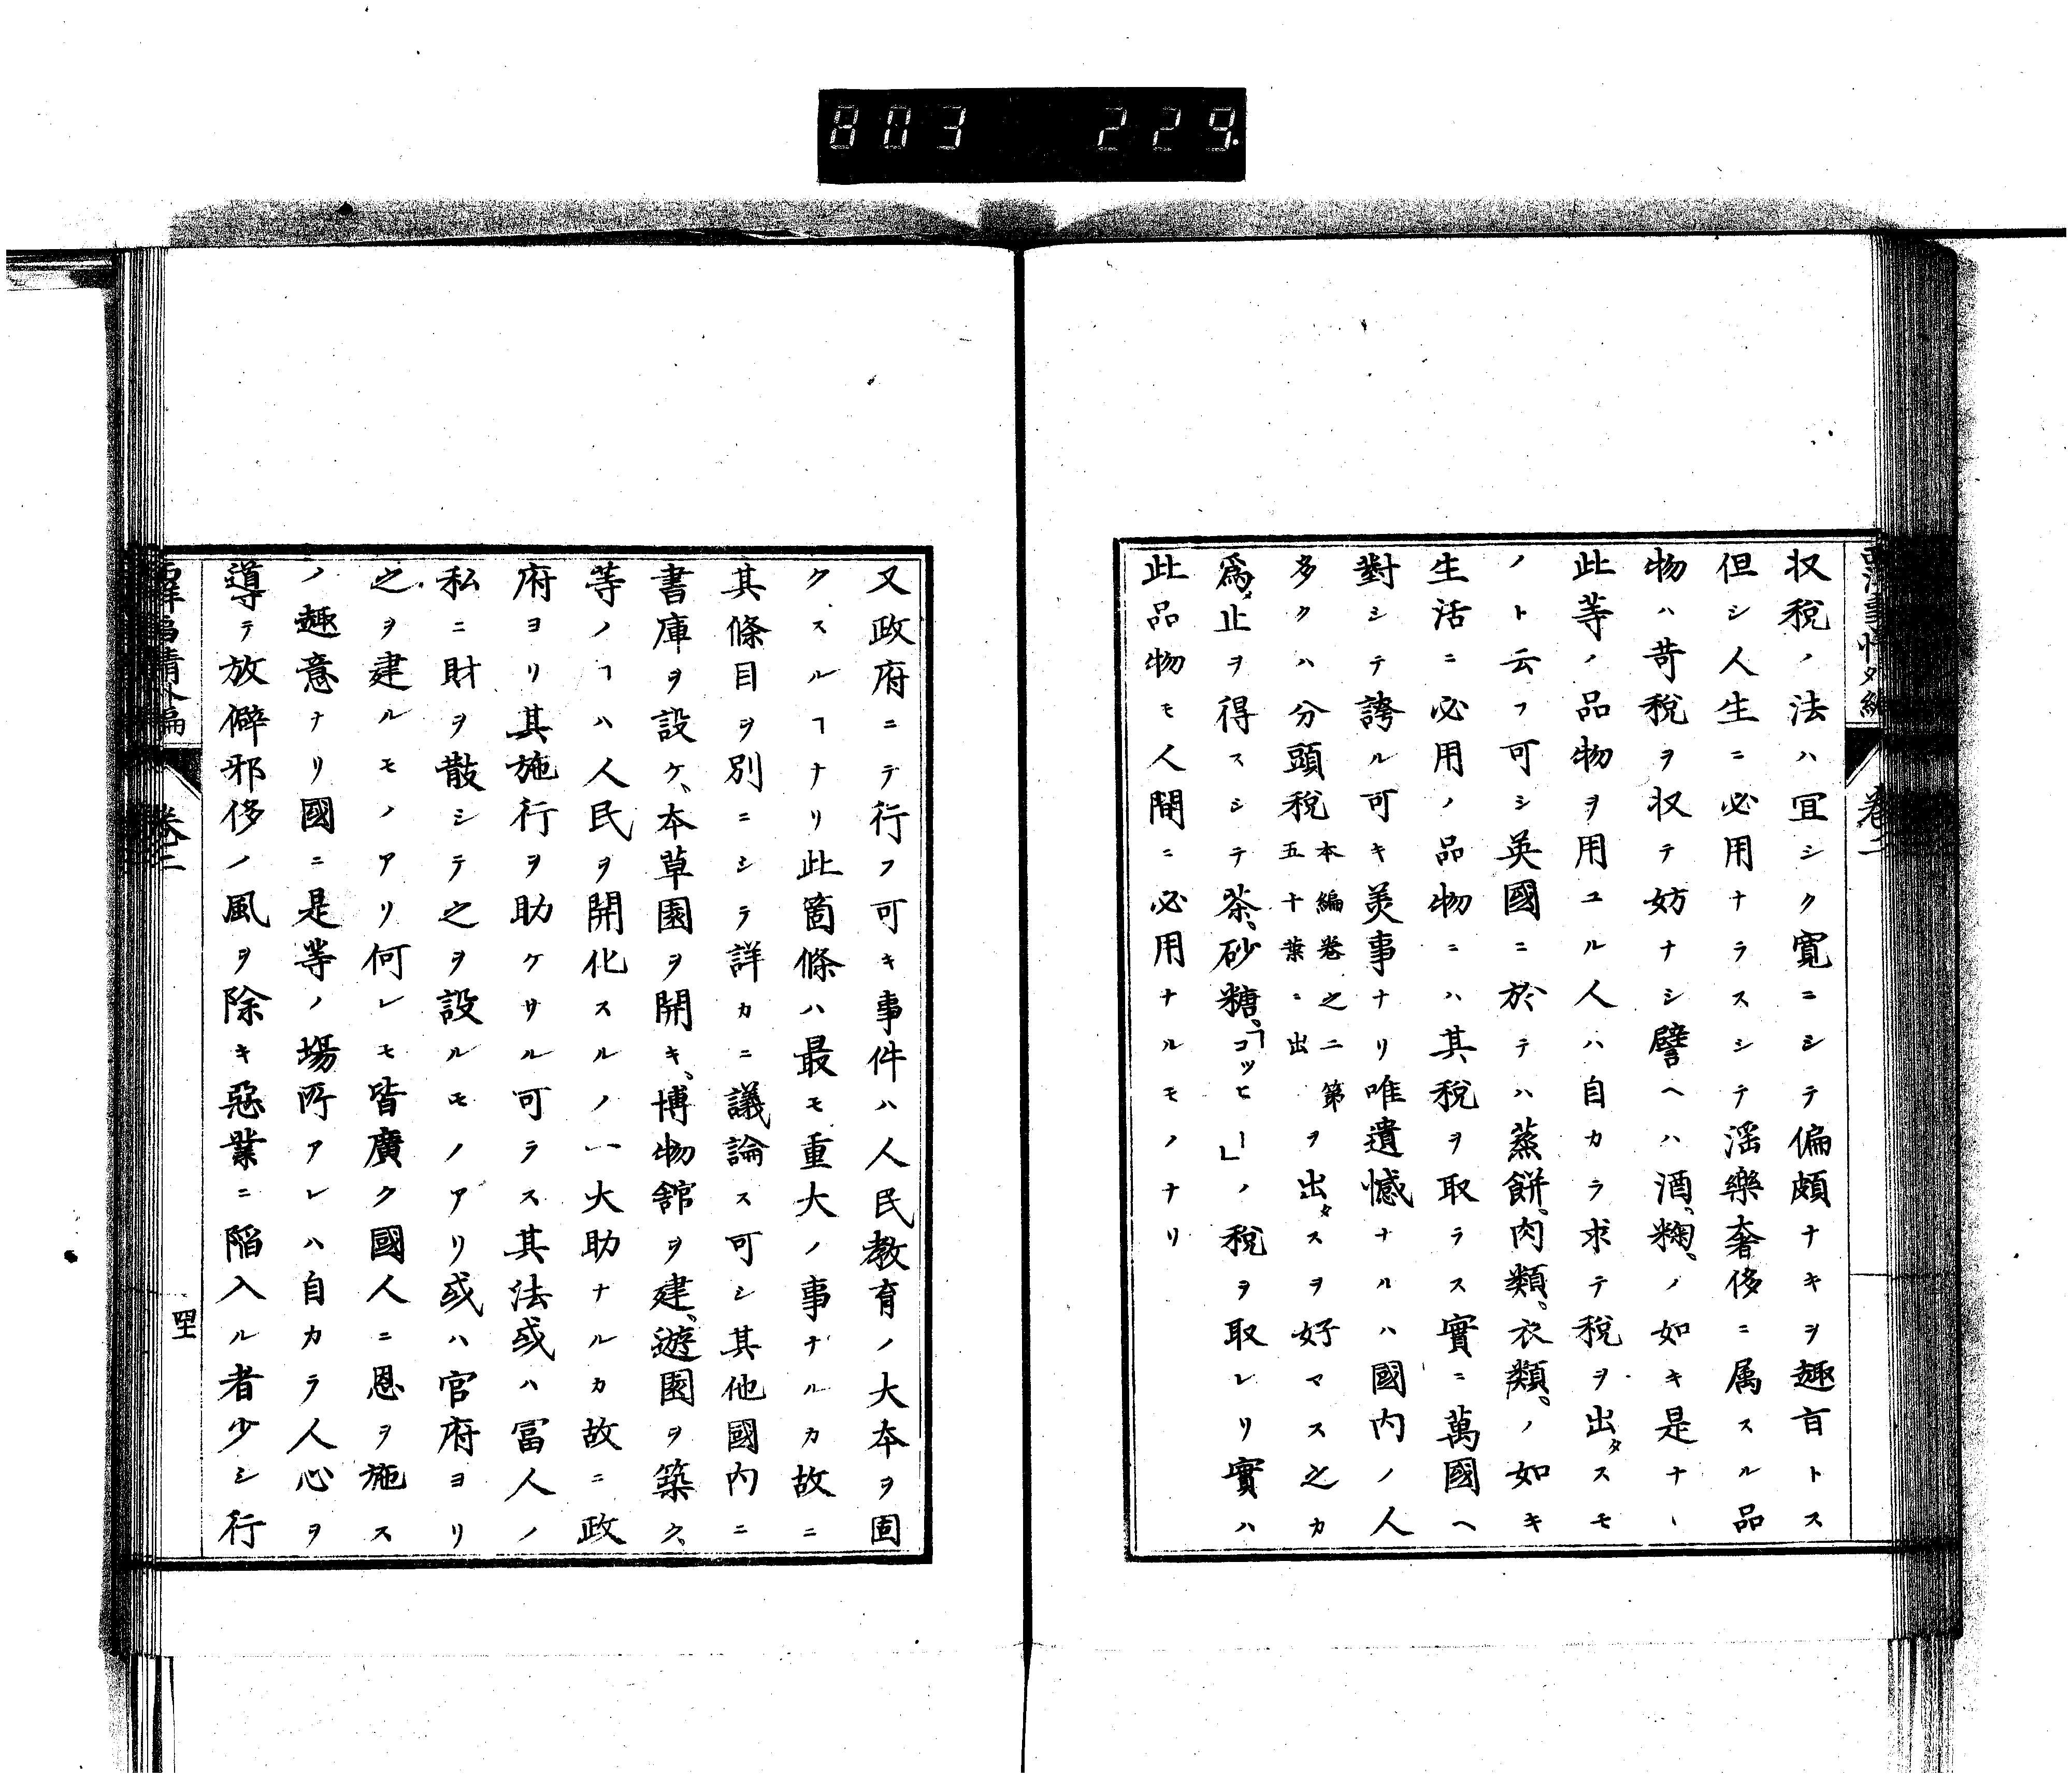 803 229.
西洋事情外編
卷二
収税ノ法ハ冝シク寛ニシテ偏頗ナキヲ趣旨トス
但シ人生ニ必用ナラスシテ滛樂奢侈ニ属スル品
物ハ苛税ヲ収テ妨ナシ譬ヘハ酒、麹、ノ如キ是ナヽ
此等ノ品物ヲ用ユル人ハ自カラ求テ税ヲ出タスモ
ノト云フ可シ英國ニ於テハ蒸餅、肉類、衣類、ノ如キ
生活ニ必用ノ品物ニハ其税ヲ取ラス實ニ萬國ヘ
對シテ誇ル可キ美事ナリ唯遺憾ナルハ國内ノ人
多クハ分頭税本編卷之二第五十葉ニ出ヲ出タスヲ好マス之カ
爲メ止ヲ得スシテ茶、砂糖、「コツヒー」ノ税ヲ取レリ實ハ
此品物モ人間ニ必用ナルモノナリ
又政府ニテ行フ可キ事件ハ人民教育ノ大夲ヲ固
クスルヿナリ此箇條ハ最モ重大ノ事ナルカ故ニ
其條目ヲ別ニシテ詳カニ議論ス可シ其他國内ニ
書庫ヲ設ケ、夲草園ヲ開キ、博物舘ヲ建、遊園ヲ築ク、
等ノヿハ人民ヲ開化スルノ一大助ナルカ故ニ政
府ヨリ其施行ヲ助ケサル可ラス其法或ハ冨人ノ
私ニ財ヲ散シテ之ヲ設ルモノアリ或ハ官府ヨリ
之ヲ建ルモノアリ何レモ皆廣ク國人ニ恩ヲ施ス
ノ趣意ナリ國ニ是等ノ塲所アレハ自カラ人心ヲ
導テ放僻邪侈ノ風ヲ除キ惡業ニ陷入ル者少シ行
西洋事情外編
卷二
四